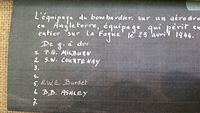 L'équipage du bombardier, sur un aérodro
en Angleterre, équipage qui périt en
entier sur La Fagne le 23 avril 1944.
De g. à dr.
1. P.G. MILBURN
2. S.W. COURTENAY
3.
4.
5. E.W.E. Burdet
6. D.D. ASHLEY
7.